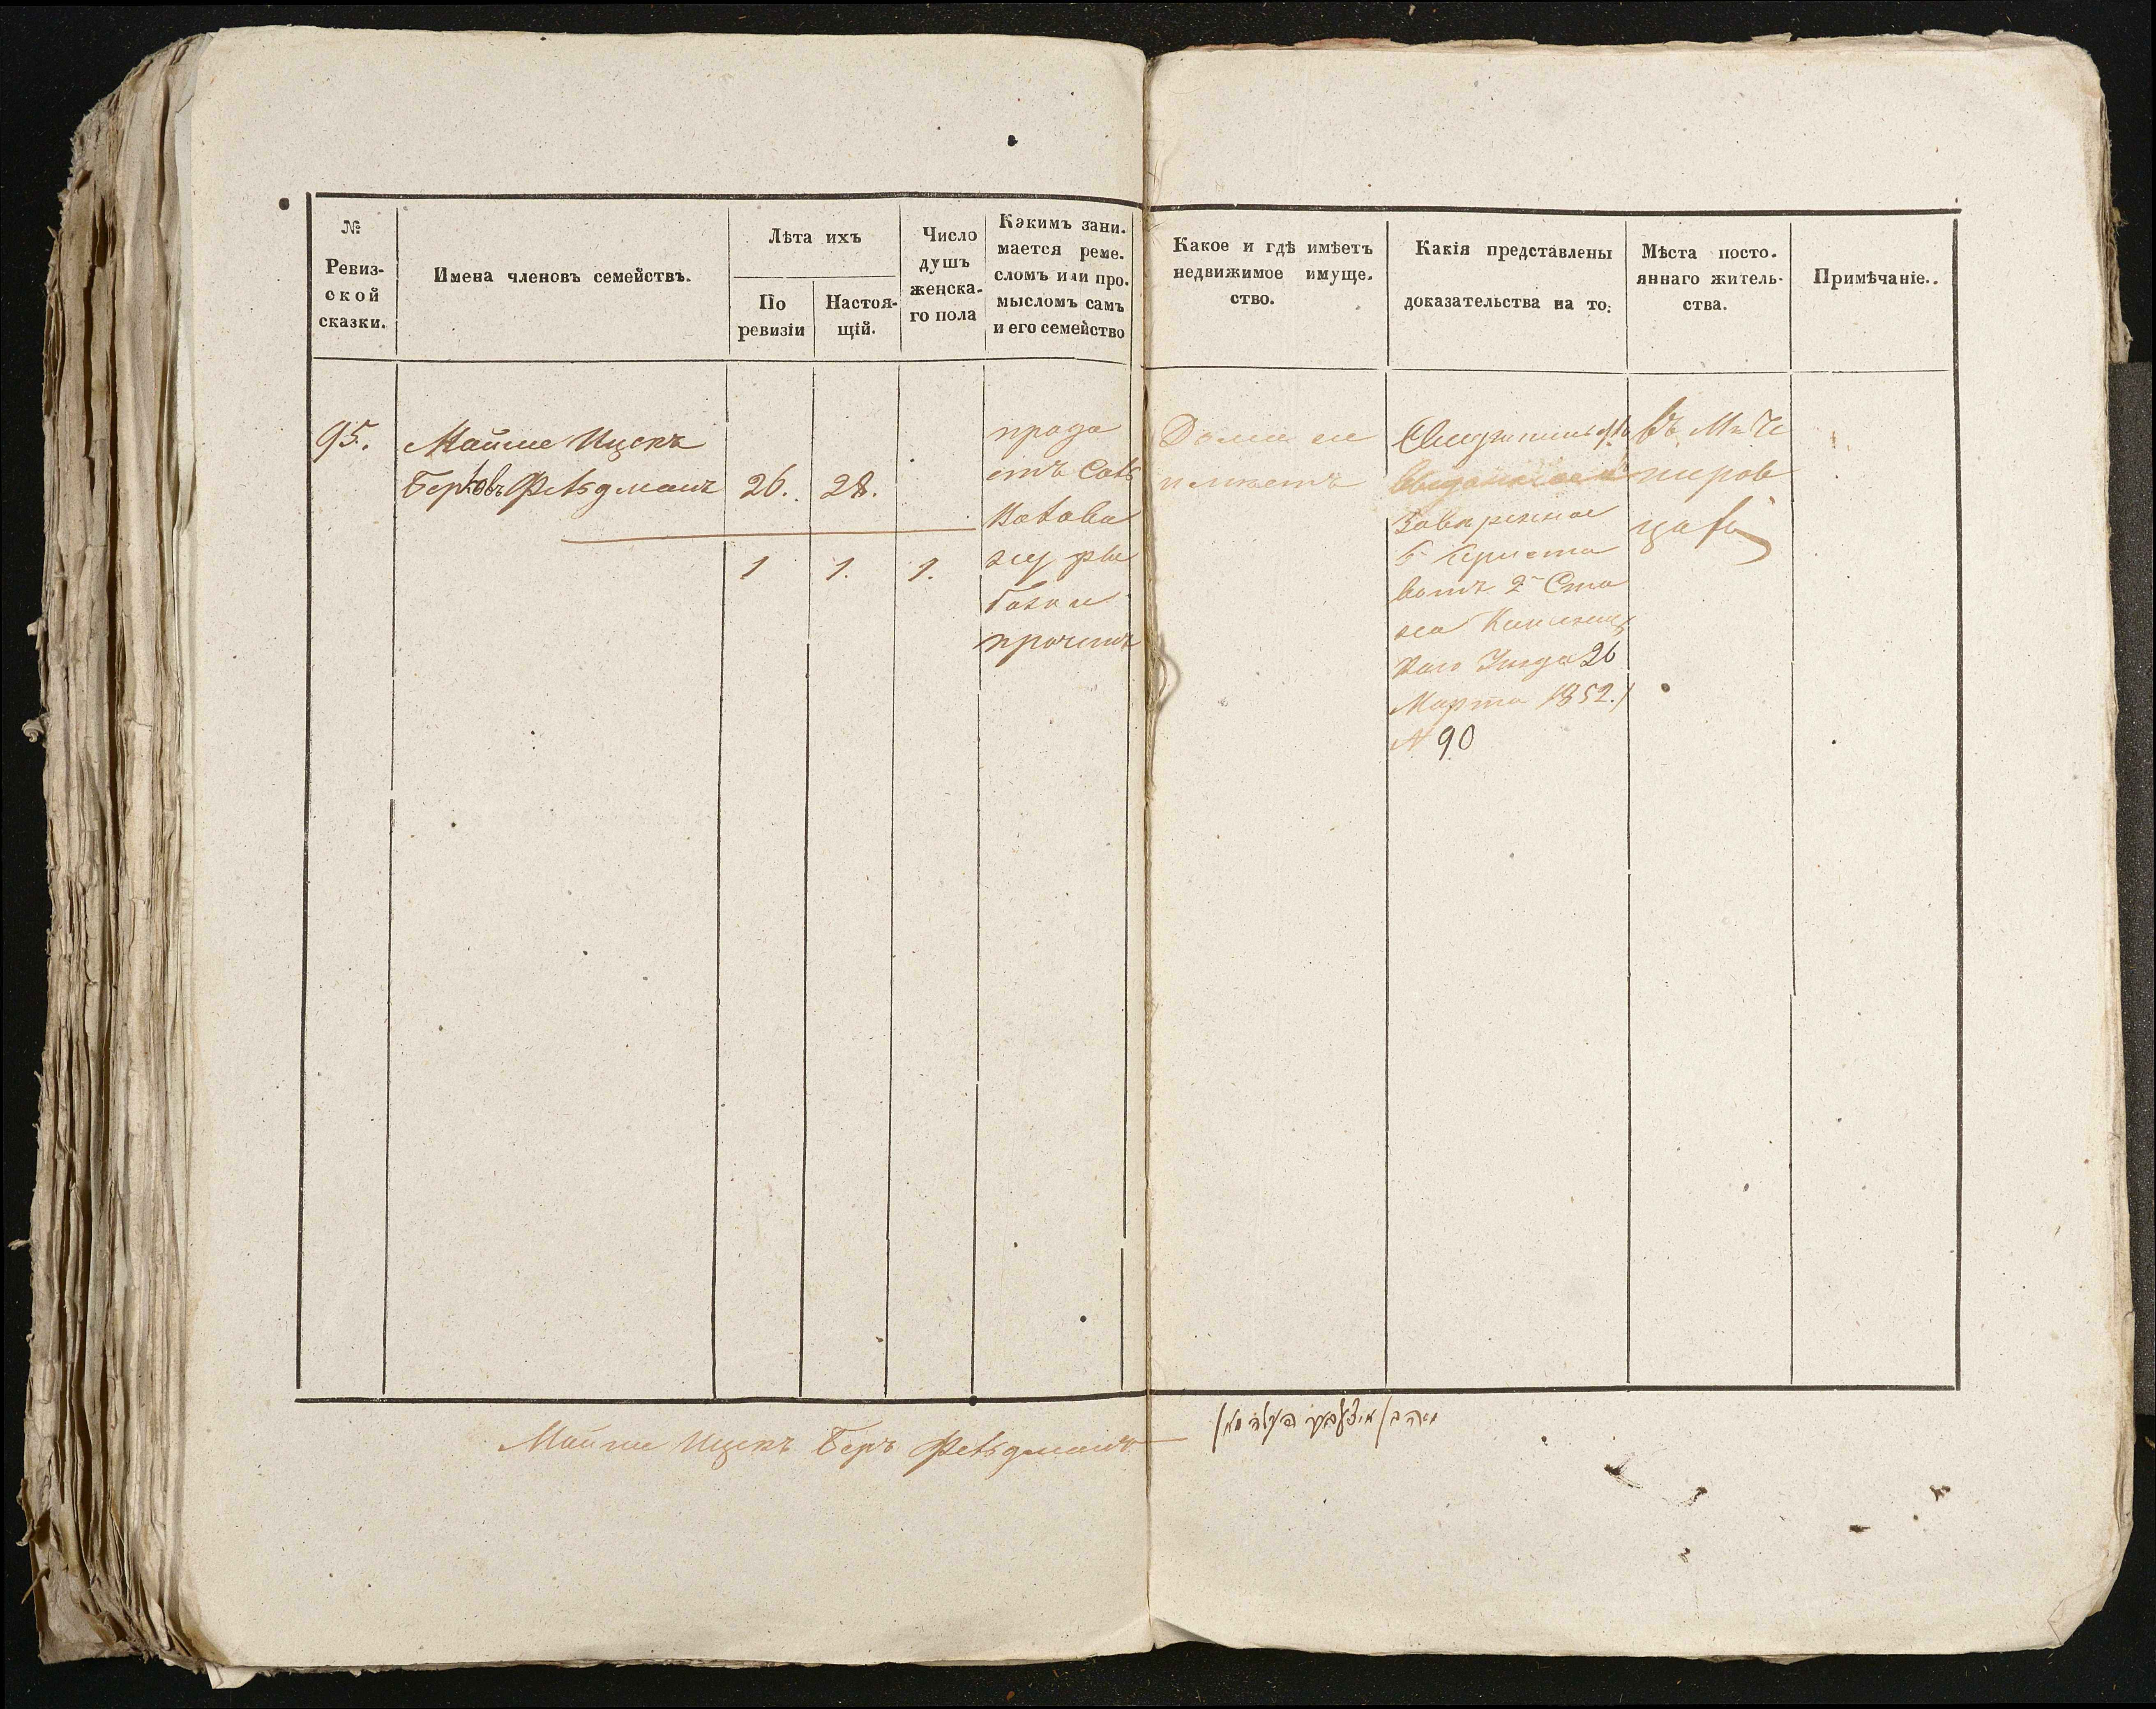 №
Ревиз-
ской
сказки.
Имена членовъ семействъ.
Лѣта ихъ
По
ревизіи
Настоя-
щій.
Число
душъ
женска-
го пола
Какимъ зани.
мается реме.
сломъ или про.
мысломъ самъ
и его семейство
Какое и гдѣ имѣетъ
недвижимое имуще.
ство.
Какія представлены
доказательства на то.
Мѣста посто.
яннаго житель-
ства.
Примѣчаніе..
95.
Майше Ицекъ
Берковъ Фельдманъ
26.
28.
1
1.
1.
прода
етъ
прочемъ
Дома не
имѣетъ
заверенное
Приста
вомъ 2 Ста
на
каго Уезда 26
Марта 1852.
№ 90
въ М. Че
меров
цахъ
Майше Ицекъ Беръ Фельдманъ